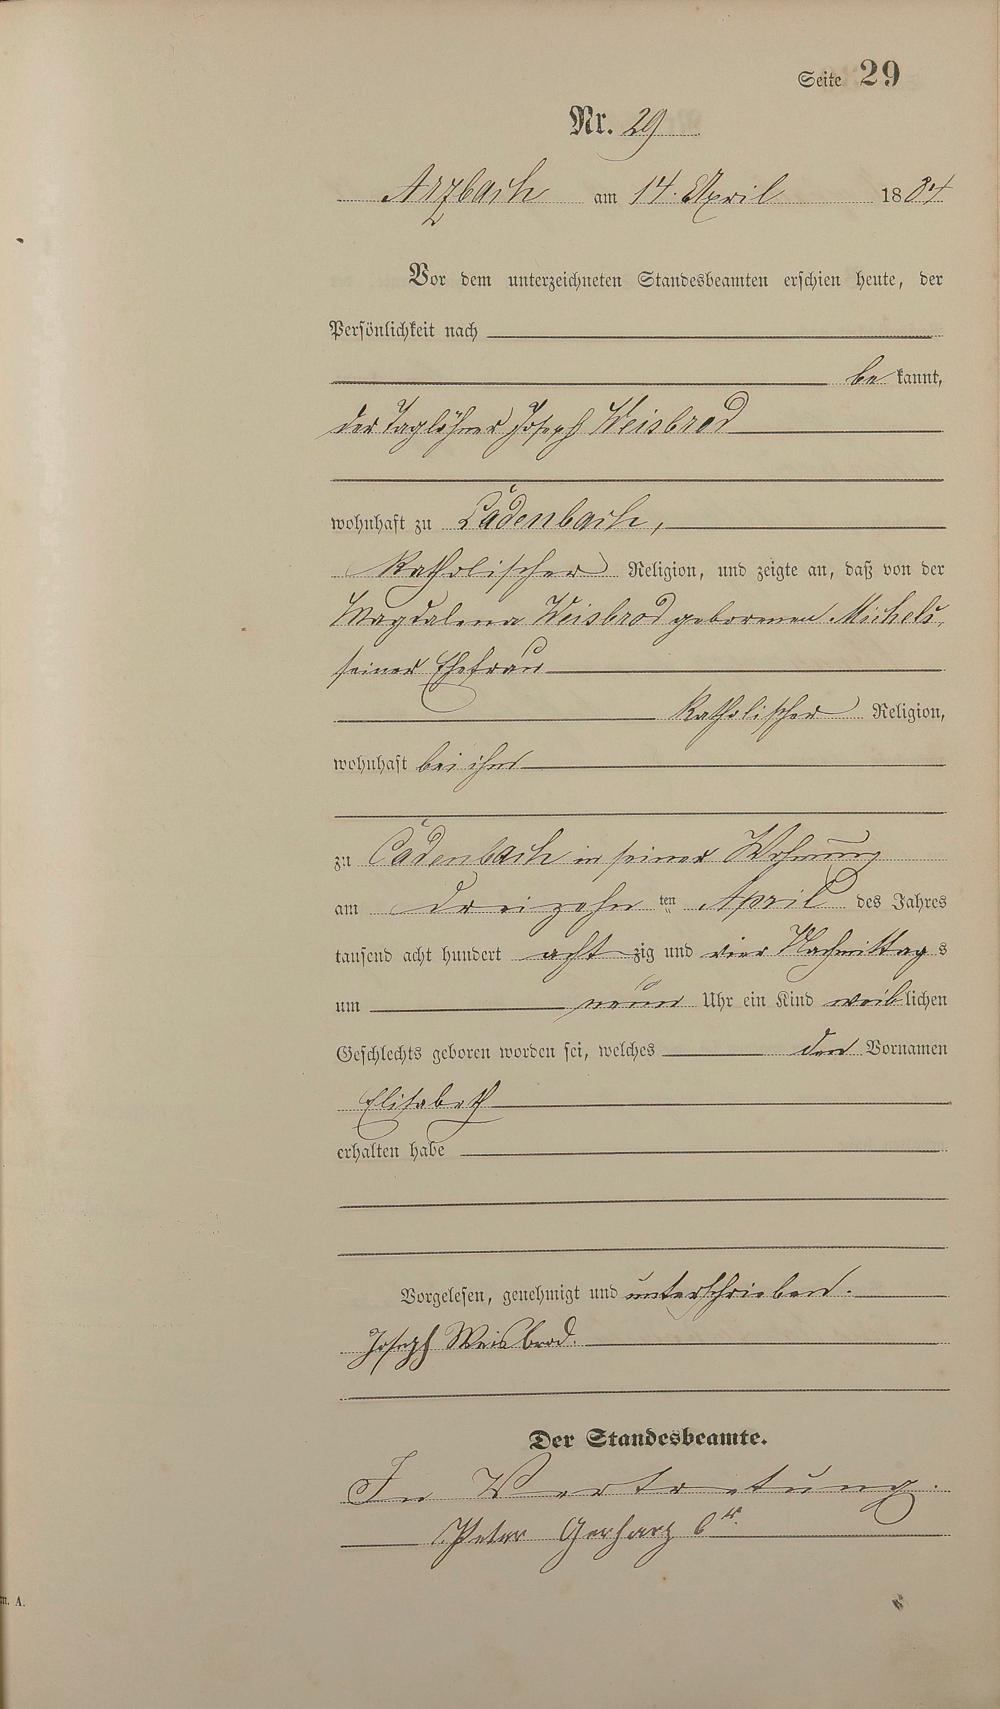 Seite 29
Nr. 29
Arzbach am 14. April 1884
Vor dem unterzeichneten Standesbeamten erschien heute, der
Persönlichkeit nach
bekannt,
der Taglöhner Joseph Weisbrod
wohnhaft zu Cadenbach,
katholischer Religion, und zeigte an, daß von der
Magdalena Weisbrod geborenen Michels,
seiner Ehefrau
katholischer Religion,
wohnhaft bei ihm
zu Cadenbach in seiner Wohnung
am dreizehnten April des Jahres
tausend acht hundert achtzig und vier Nachmittags
um neun Uhr ein Kind weiblichen
Geschlechts geboren worden sei, welches den Vornamen
Elisabeth
erhalten habe
Vorgelesen, genehmigt und unterschrieben.
Joseph Weisbrod.
Der Standesbeamte.
In Vertretung.
Peter Gerharz 6r.
m. A.